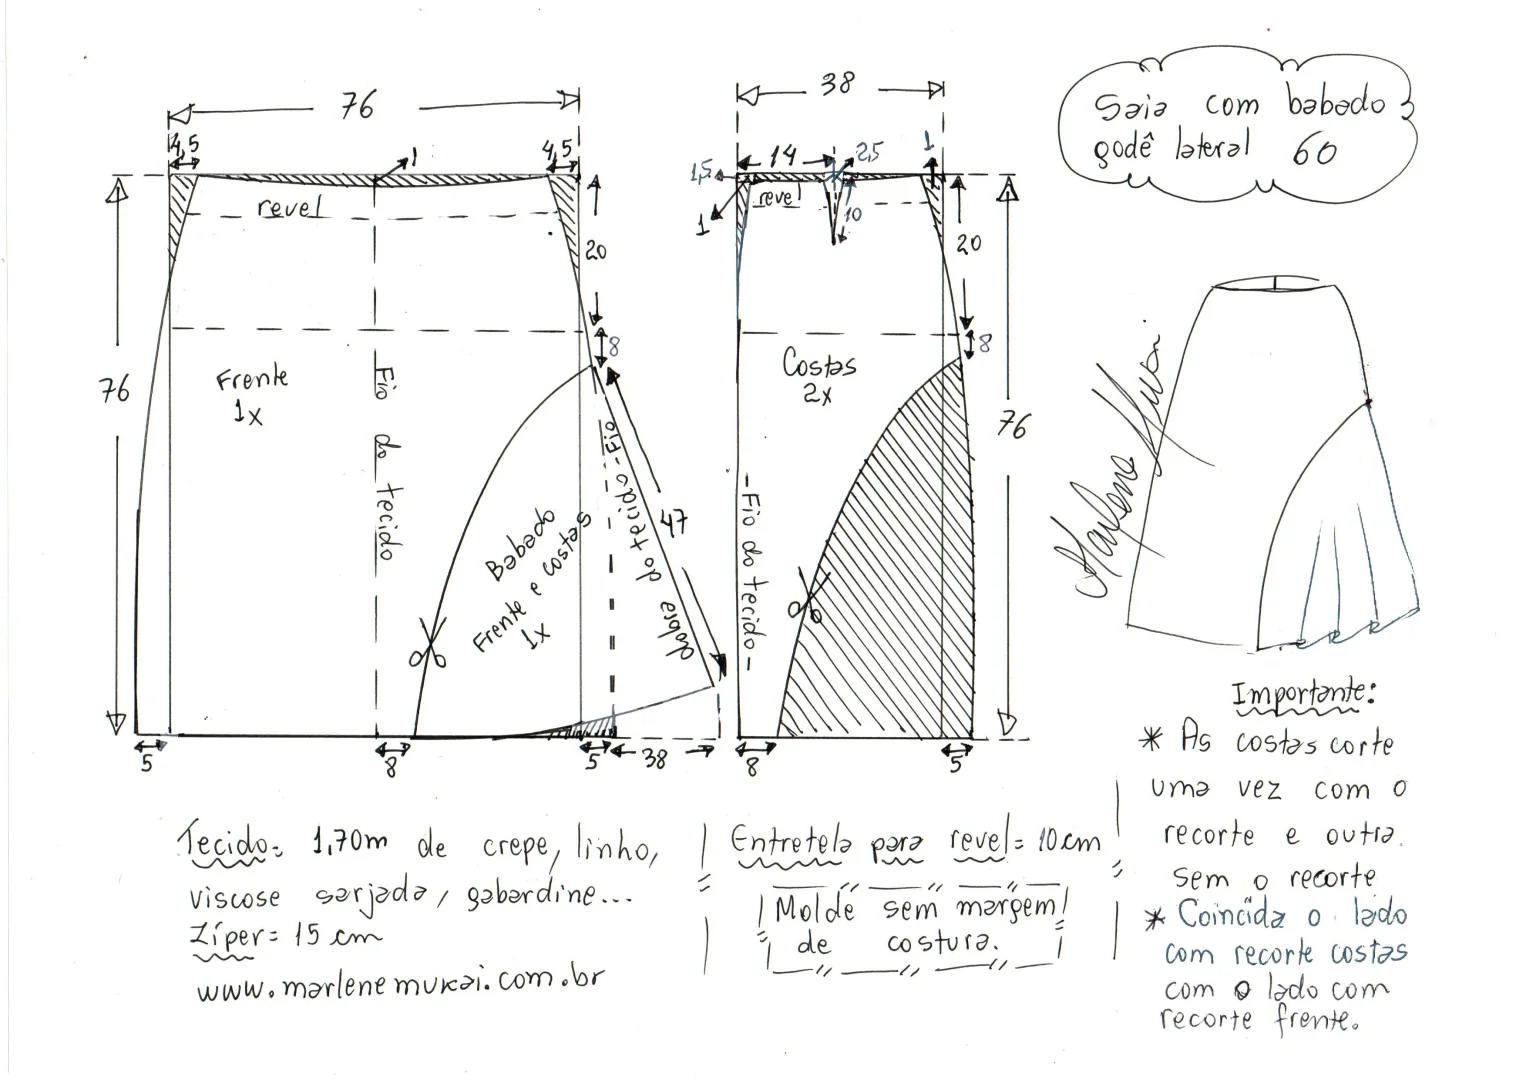 Saia com babado
godê lateral 60
76
4,5
1
4,5
revel
20
8
76
Frente
1x
Fio do tecido
Babado
Frente e costas
1x
Fio do tecido
dobra
47
5
8
5
38
38
14
2,5
1
1,5
revel
1
10
20
8
Costas
2x
76
Fio do tecido
8
5
Marlene Mukai
Importante:
* As costas corte
uma vez com o
recorte e outra
sem o recorte
* Coincida o lado
com recorte costas
com o lado com
recorte frente.
Tecido= 1,70m de crepe, linho,
viscose sarjada, gabardine...
Zíper= 15 cm
www.marlenemukai.com.br
Entretela para revel= 10cm
Molde sem margem
de costura.